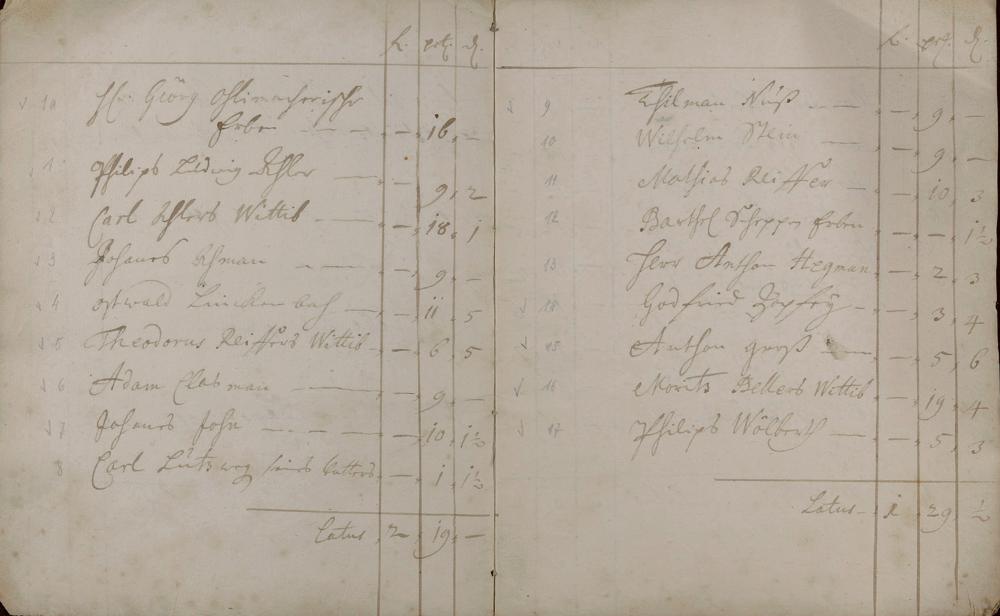 fl. ptz. d.
10 Hr. Görg Ohlimacherische
Erben — — 16. —
1 Philips Ludwig Ohler — — 9. 2
2 Carl Ohlers Wittib — — 18. 1
3 Johanes Ohman — — 9. —
4 Ostwald Linckenbach — — 11. 5
5 Theodorus Reiffers Wittib — — 6. 5
6 Adam Clasman — — 9. —
7 Johanes John — — 10. 1½
8 Carl Lutzweg seines Vatters — 1. 1½
Latus 2 19. —
fl. ptz. d.
9 Thilman Nuß — — 9. —
10 Wilhelm Stein — — 9. —
11 Mathias Reiffer — — 10. 3
12 Barthel Schepps Erben — — 1½
13 Herr Anthon Hegman — 2. 3
14 Godfried — — 3. 4
15 Anthon groß — — 5. 6
16 Moritz Bellers Wittib — 19. 4
17 Philips Wölberth — — 5. 3
Latus — 1 29. ½